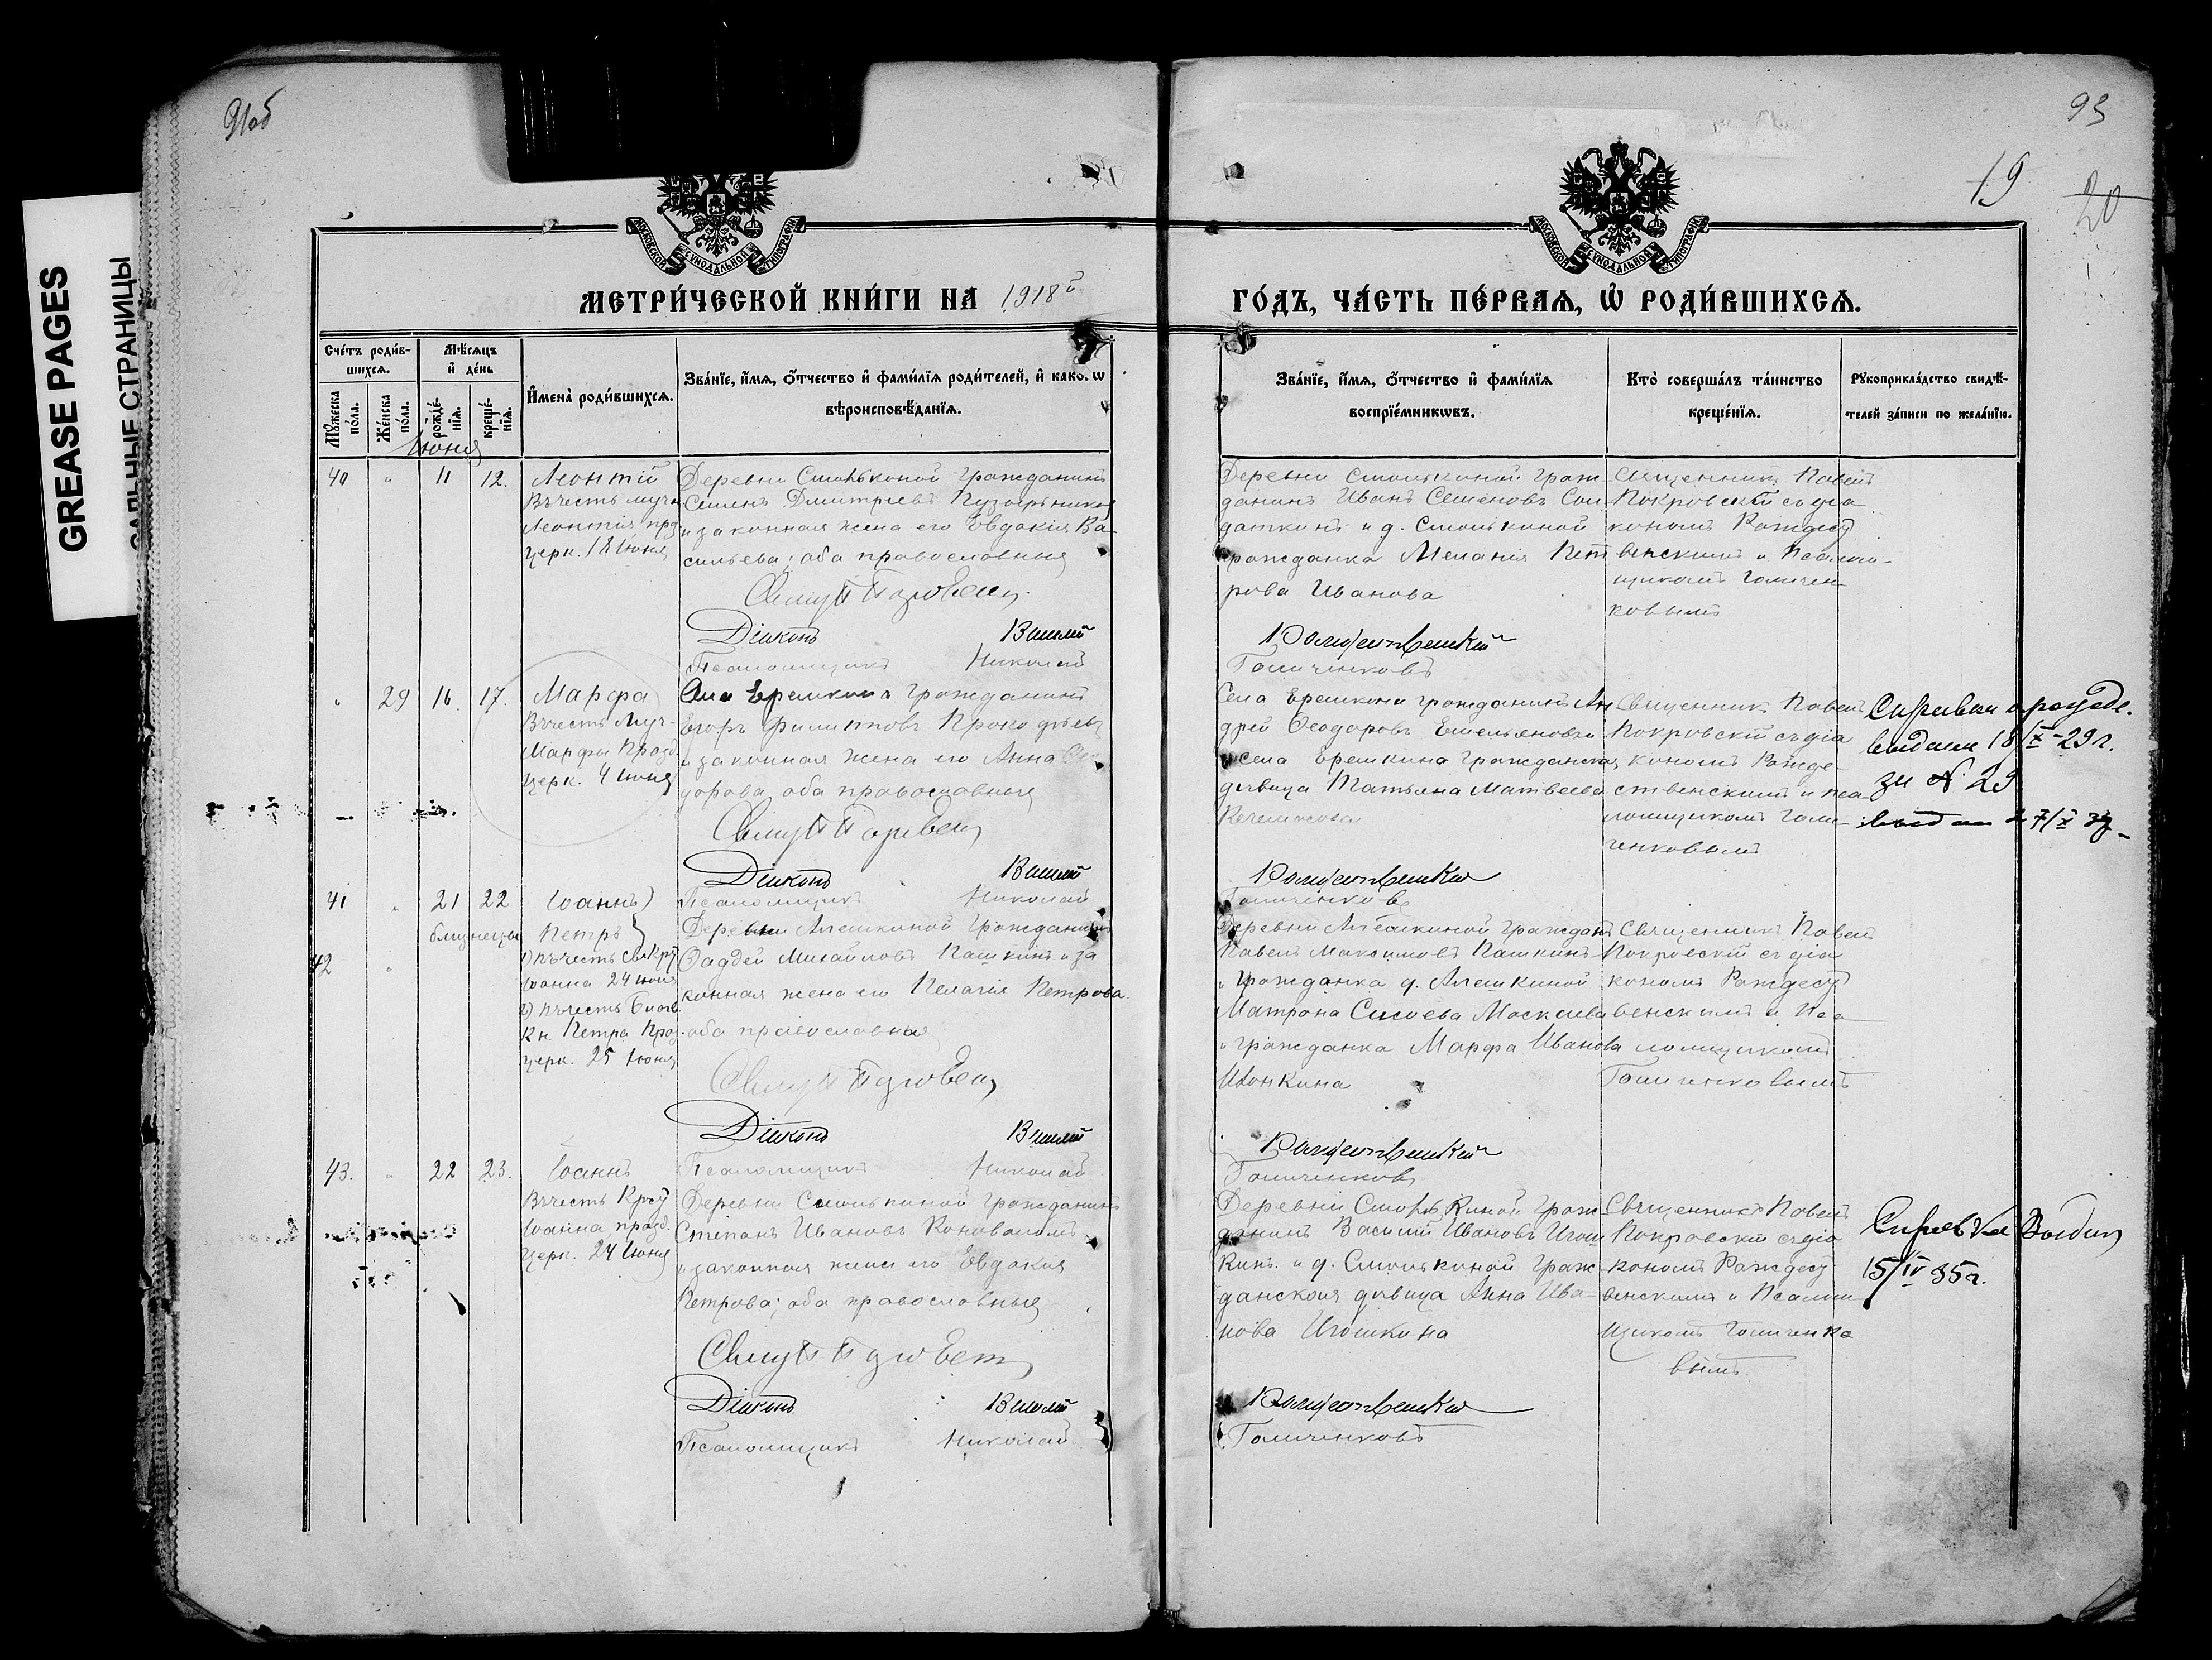 GREASE PAGES
САЛЬНЫЕ СТРАНИЦЫ
91об
93
19
20
МОСКОВСКОЙ СѴНОДАЛЬНОЙ ТИПОГРАФІИ
МОСКОВСКОЙ СѴНОДАЛЬНОЙ ТИПОГРАФІИ
МЕТРИ́ЧЕСКОЙ КНИ́ГИ НА 1918й
ГО́ДЪ, ЧА́СТЬ ПЕ́РВАѦ, Ѡ҆ РОДИ́ВШИХСѦ.
Сче́тъ роди́в-
шихсѧ.
Мꙋ́жеска
по́ла.
Же́нска
по́ла.
Мѣ́сѧцъ
и҆ де́нь
рожде́-
нїѧ.
креще́-
нїѧ.
И҆мена̀ роди́вшихсѧ.
Зва́нїе, и҆́мѧ, ѻ҆́тчество и҆ фами́лїѧ роди́телей, и҆ како́гѡ
вѣроисповѣ́данїѧ.
Зва́нїе, и҆́мѧ, ѻ҆́тчество и҆ фами́лїѧ
воспрїе́мникѡвъ.
Кто̀ соверша́лъ та́инство
креще́нїѧ.
Рꙋкоприкла́дство свидѣ́-
телей за́писи по жела́нїю.
Июня
40 " 11 12.
Леонтій
Въ честь муч.
Леонтія прз
церк. 18 Июня
Деревни Смолькиной гражданинъ
Семенъ Дмитріевъ
и законная жена его Евдокія Ва-
сильева; оба православные
Діаконъ Василій
Псаломщикъ Николай
Деревни Смолькиной граж-
данинъ Иванъ Семеновъ Сол
даткинъ и д. Смолькиной
гражданка Меланія Пет
рова Иванова
Рождественскій
Голиченковъ
Священникъ Павелъ
Покровскій съ діа
кономъ Рождест
венскимъ и Псалом-
щикомъ Голичен-
ковымъ
" 29 16. 17.
Марфа
Въ честь Муч-
Марфы Празд.
церк. 4 Июня
Села Еремкина гражданинъ
Егоръ Филипповъ Прокофьевъ
и законная жена его Анна
дорова, оба православные
Діаконъ Василій
Псаломщикъ Николай
Села Еремкина гражданинъ Ан
дрей Ѳеодоровъ Емельяновъ
и села Еремкина гражданская
дѣвица Татьяна Матвѣева
Рождественскій
Голиченковъ
Священникъ Павелъ
Покровскій съ діа
кономъ Рожде-
ственскимъ и пса-
ломщикомъ Голи-
ченковымъ
Справка о рожде.
выдана 18/X-29г.
за № 29
41 " 21 22
близнецы
42 "
Іоаннъ
Петръ
1) въ честь Св. Кр.
Іоанна 24 июня
2) въ честь Благ
Кн Петра Праз.
церк. 25 Июня
Деревни Алешкиной Гражданинъ
Ѳаддей Михайловъ Пашкинъ и за
конная жена его Пелагія Петрова
оба православныя
Діаконъ Василій
Псаломщикъ Николай
Деревни Алешкиной граждан
Павелъ Максимовъ Пашкинъ
" Гражданка д. Алешкиной
Матрона Сысоева
" гражданка Марфа Иванова
Рождественскій
Голиченковъ
Священникъ Павелъ
Покровскій съ діа
кономъ Рождест
венскимъ и Пса
ломщикомъ
Голиченковымъ
43. " 22 23.
Іоаннъ
Въ честь Крест
Іоанна празд.
церк. 24 Июня
Деревни Смолькиной гражданинъ
Степанъ Ивановъ Коноваловъ
и законная жена его Евдокія
Петрова; оба православные
Діаконъ Василій
Псаломщикъ Николай
Деревни Смолькиной граж
данинъ Василій Ивановъ Игош
кинъ и д. Смолькиной граж-
данская дѣвица Анна Ива-
нова Игошкина
Рождественскій
Голиченковъ
Священникъ Павелъ
Покровскій съ діа
кономъ Рождест
венскимъ и Псалом
щикомъ Голиченко
вымъ
Справка Выдан
15/IV 35г.